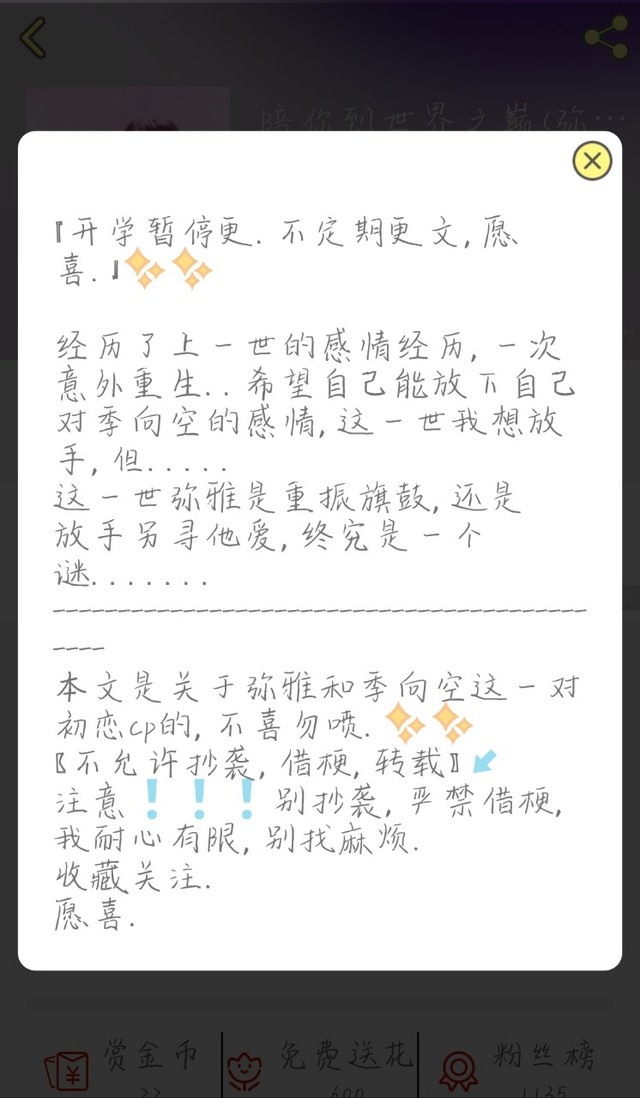 陪你到世界之巅(弥…
『开学暂停更. 不定期更文,愿
喜.』
经历了上一世的感情经历,一次
意外重生..希望自己能放下自己
对季向空的感情,这一世我想放
手,但.....
这一世弥雅是重振旗鼓,还是
放手另寻他爱,终究是一个
谜.......
------------------------------------------
----
本文是关于弥雅和季向空这一对
初恋cp的,不喜勿喷.
〖不允许抄袭,借梗,转载〗
注意❗❗❗别抄袭,严禁借梗,
我耐心有限,别找麻烦.
收藏关注.
愿喜.
赏金币 免费送花 粉丝榜